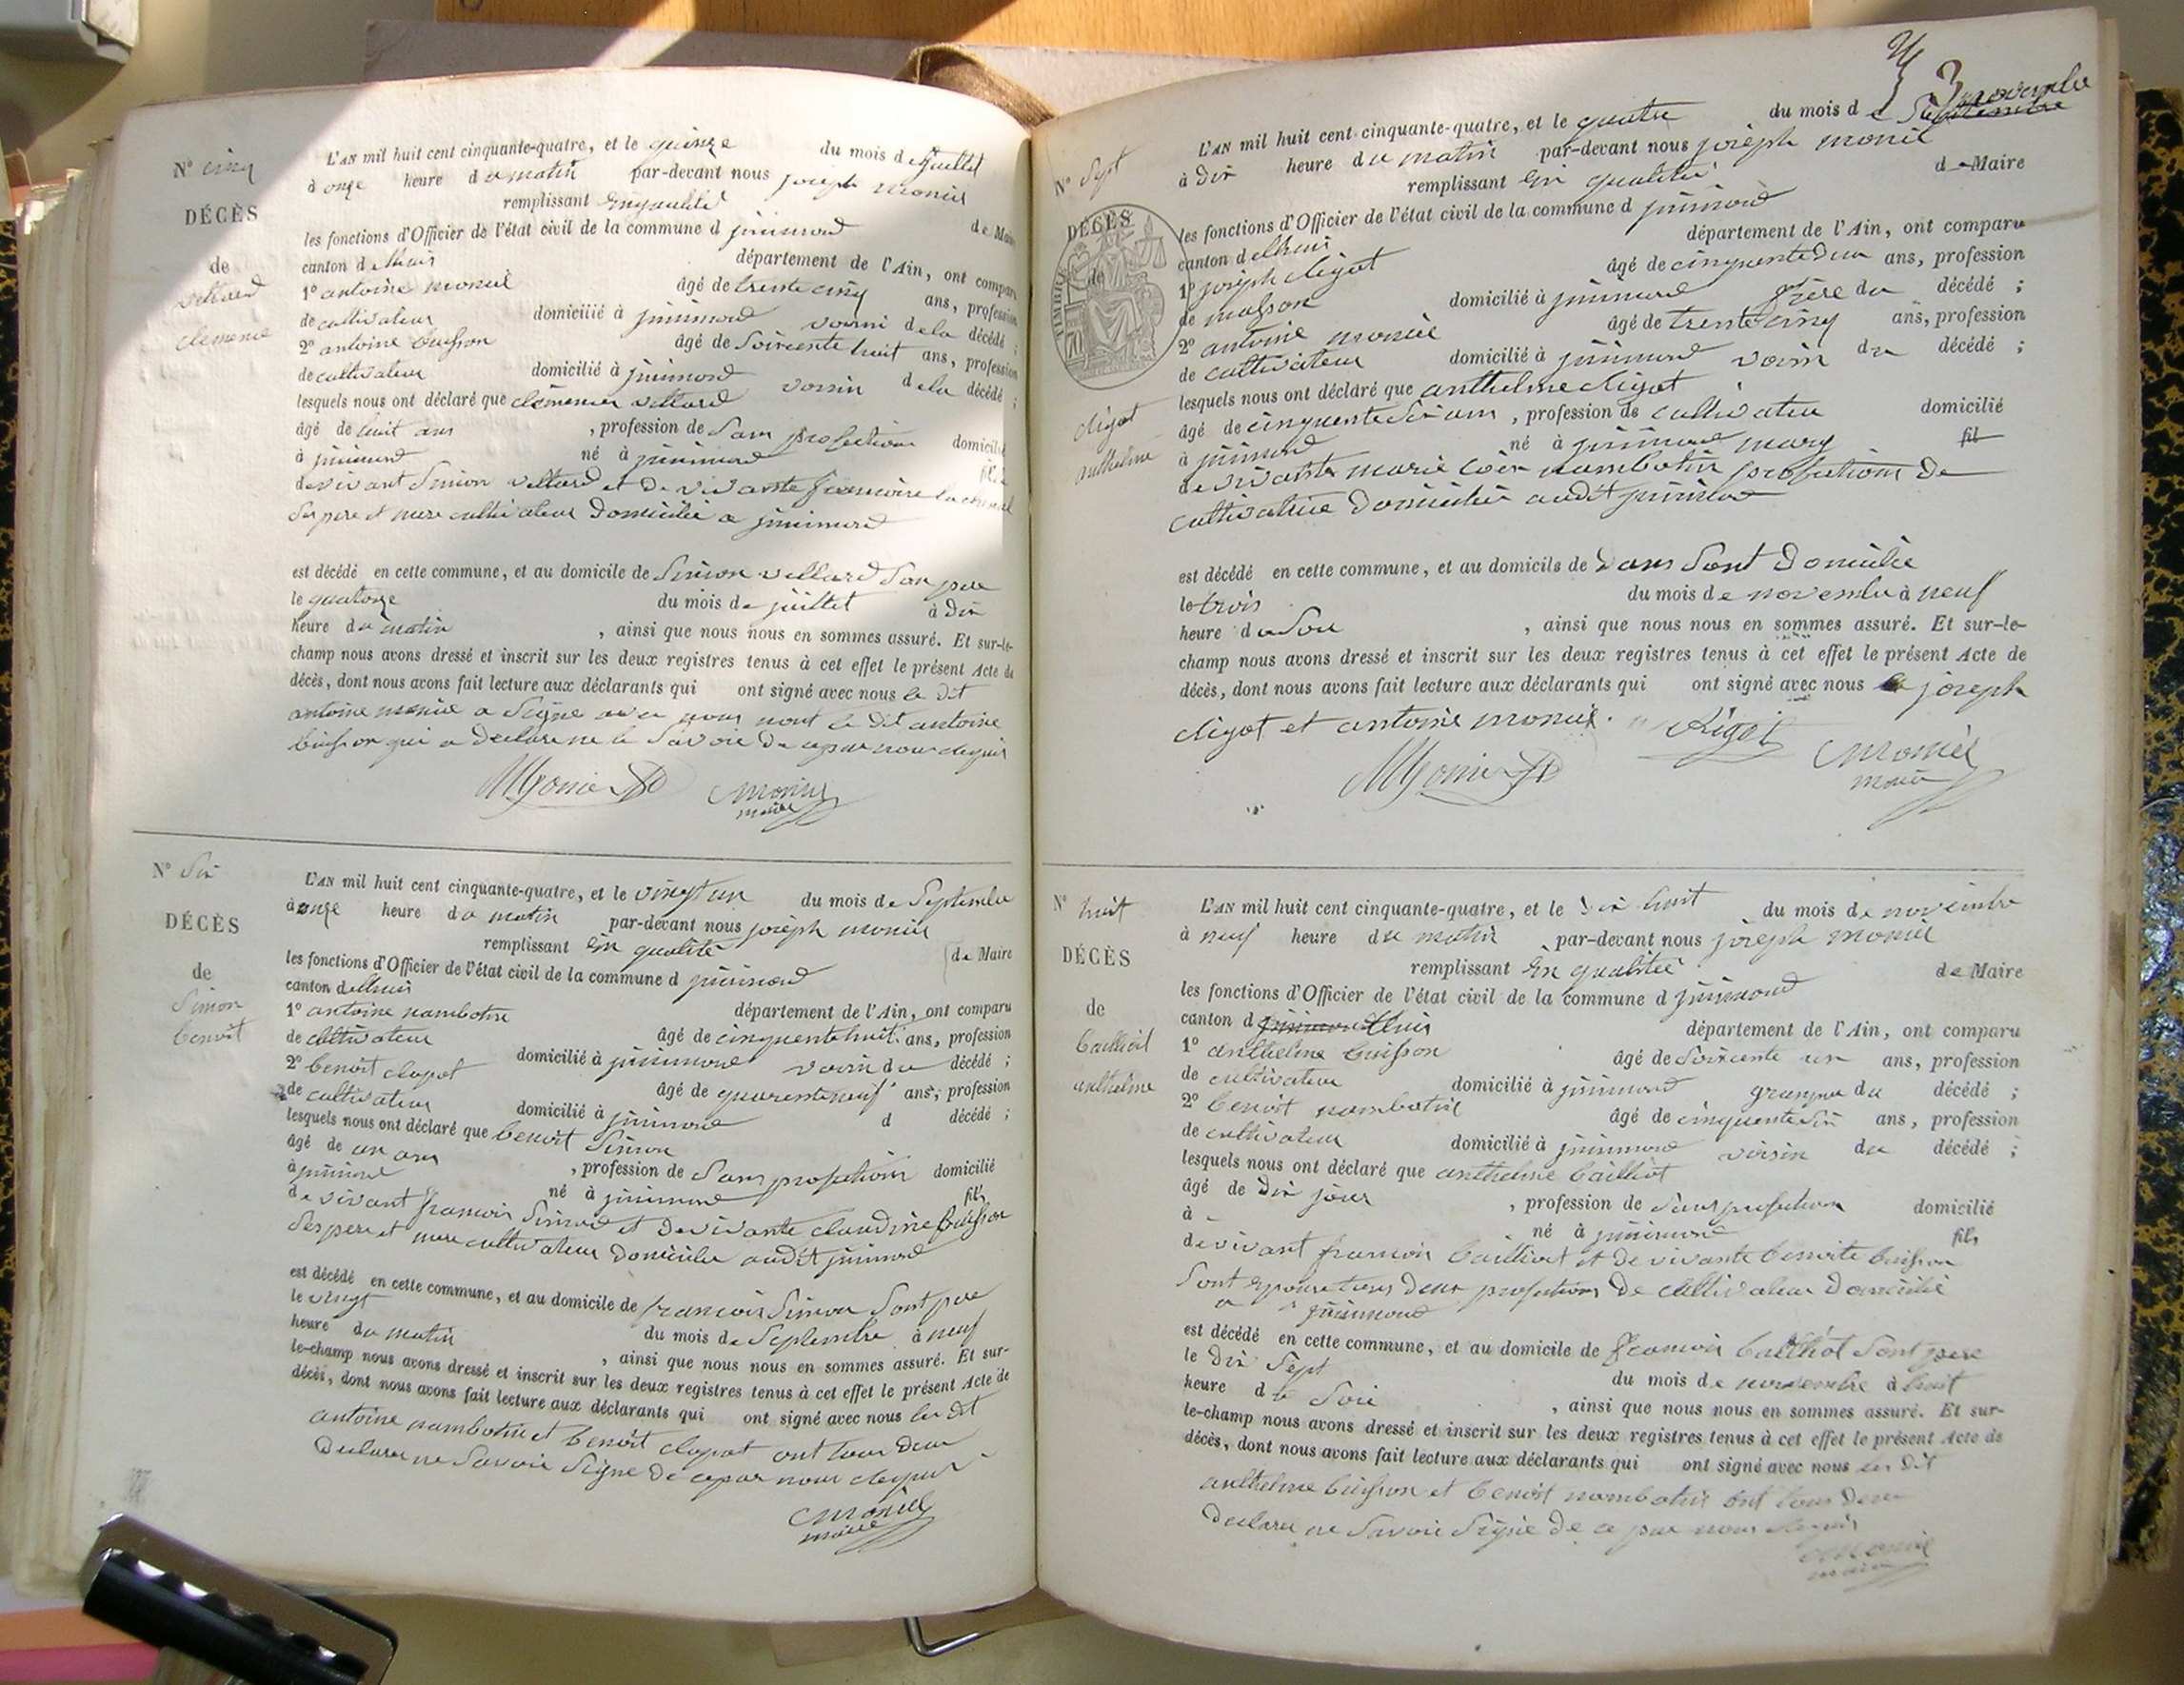 N° cinq
DÉCÈS
de
villard
clemence
L'AN mil huit cent cinquante-quatre, et le quinze du mois de juillet
à onze heure du matin par-devant nous joseph monié
remplissant en qualité de Maire
les fonctions d'Officier de l'état civil de la commune d
canton d
département de l'Ain, ont comparu
1° antoine monié âgé de trente cinq ans, profession
de cultivateur domicilié à voisin de la décédé ;
2° antoine buisson âgé de soixente huit ans, profession
de cultivateur domicilié à voisin de la décédé ;
lesquels nous ont déclaré que clémence villard
âgé de huit ans , profession de sans profection domicilié
à né à fille
de vivant Simon villard et de vivante
ses pere et mere cultivateur domicilié a
est décédé en cette commune, et au domicile de Simon villard son pere
le quatorze du mois de juillet à dix
heure du matin , ainsi que nous nous en sommes assuré. Et sur-le-
champ nous avons dressé et inscrit sur les deux registres tenus à cet effet le présent Acte de
décès, dont nous avons fait lecture aux déclarants qui ont signé avec nous le dit
antoine monié a signe avec nous nont le dit antoine
buisson qui a declare ne le savoir de ce par nous
monié
maire
N° Six
DÉCÈS
de
Simon
benoit
L'AN mil huit cent cinquante-quatre, et le vingt un du mois de Septembre
à onze heure du matin par-devant nous joseph monié
remplissant en qualité de Maire
les fonctions d'Officier de l'état civil de la commune d
canton d
département de l'Ain, ont comparu
1° antoine nambotin âgé de cinquente huit ans, profession
de cultivateur domicilié à voisin du décédé ;
2° benoit clapot âgé de quarente neuf ans, profession
de cultivateur domicilié à d décédé ;
lesquels nous ont déclaré que benoit Simon
âgé de un ans , profession de sans profection domicilié
à né à fils
de vivant francois Simon et de vivante claudine buisson
ses pere et mere cultivateur domicilie audit
est décédé en cette commune, et au domicile de francois Simon sont pere
le vingt du mois de Septembre à neuf
heure du matin , ainsi que nous nous en sommes assuré. Et sur-
le-champ nous avons dressé et inscrit sur les deux registres tenus à cet effet le présent Acte de
décès, dont nous avons fait lecture aux déclarants qui ont signé avec nous les dit
antoine nambotin et benoit clapot ont tous deux
declarer ne savoir signe de ce par nous
monié
maire
3
N° Sept
DÉCÈS
de
TIMBRE
70
anthelme
L'AN mil huit cent cinquante-quatre, et le quatre du mois de Septembre novembre
à dix heure du matin par-devant nous joseph monié
remplissant en qualité de Maire
les fonctions d'Officier de l'état civil de la commune d
canton d
département de l'Ain, ont comparu
1° joseph âgé de cinquente deux ans, profession
de masson domicilié à frère du décédé ;
2° antoine monié âgé de trente cinq ans, profession
de cultivateur domicilié à voisin du décédé ;
lesquels nous ont déclaré que anthelme
âgé de cinquente six ans , profession de cultivateur domicilié
à né à fil
de vivante marie nambotin profection de
cultivatrice domiciliée audit
est décédé en cette commune, et au domicile de dans sont domicile
le trois du mois de novembre à neuf
heure du soir , ainsi que nous nous en sommes assuré. Et sur-le-
champ nous avons dressé et inscrit sur les deux registres tenus à cet effet le présent Acte de
décès, dont nous avons fait lecture aux déclarants qui ont signé avec nous joseph
et antoine monié
monié
maire
N° huit
DÉCÈS
de
bailliot
anthelme
L'AN mil huit cent cinquante-quatre, et le dix huit du mois de novembre
à neuf heure du matin par-devant nous joseph monié
remplissant en qualité de Maire
les fonctions d'Officier de l'état civil de la commune d
canton d
département de l'Ain, ont comparu
1° anthelme buisson âgé de soixente un ans, profession
de cultivateur domicilié à du décédé ;
2° benoit nambotin âgé de cinquente six ans, profession
de cultivateur domicilié à voisin du décédé ;
lesquels nous ont déclaré que anthelme bailliot
âgé de dix jour , profession de sans profection domicilié
à né à fils
de vivant francois bailliot et de vivante benoite buisson
sont epouse tous deux profection de cultivateur domicilié
a
est décédé en cette commune, et au domicile de francois bailliot sont pere
le dix sept du mois de novembre à huit
heure du soir , ainsi que nous nous en sommes assuré. Et sur-
le-champ nous avons dressé et inscrit sur les deux registres tenus à cet effet le présent Acte de
décès, dont nous avons fait lecture aux déclarants qui ont signé avec nous les dit
anthelme buisson et benoit nambotin ont tous deux
declarer ne savoir signe de ce par nous
monié
maire